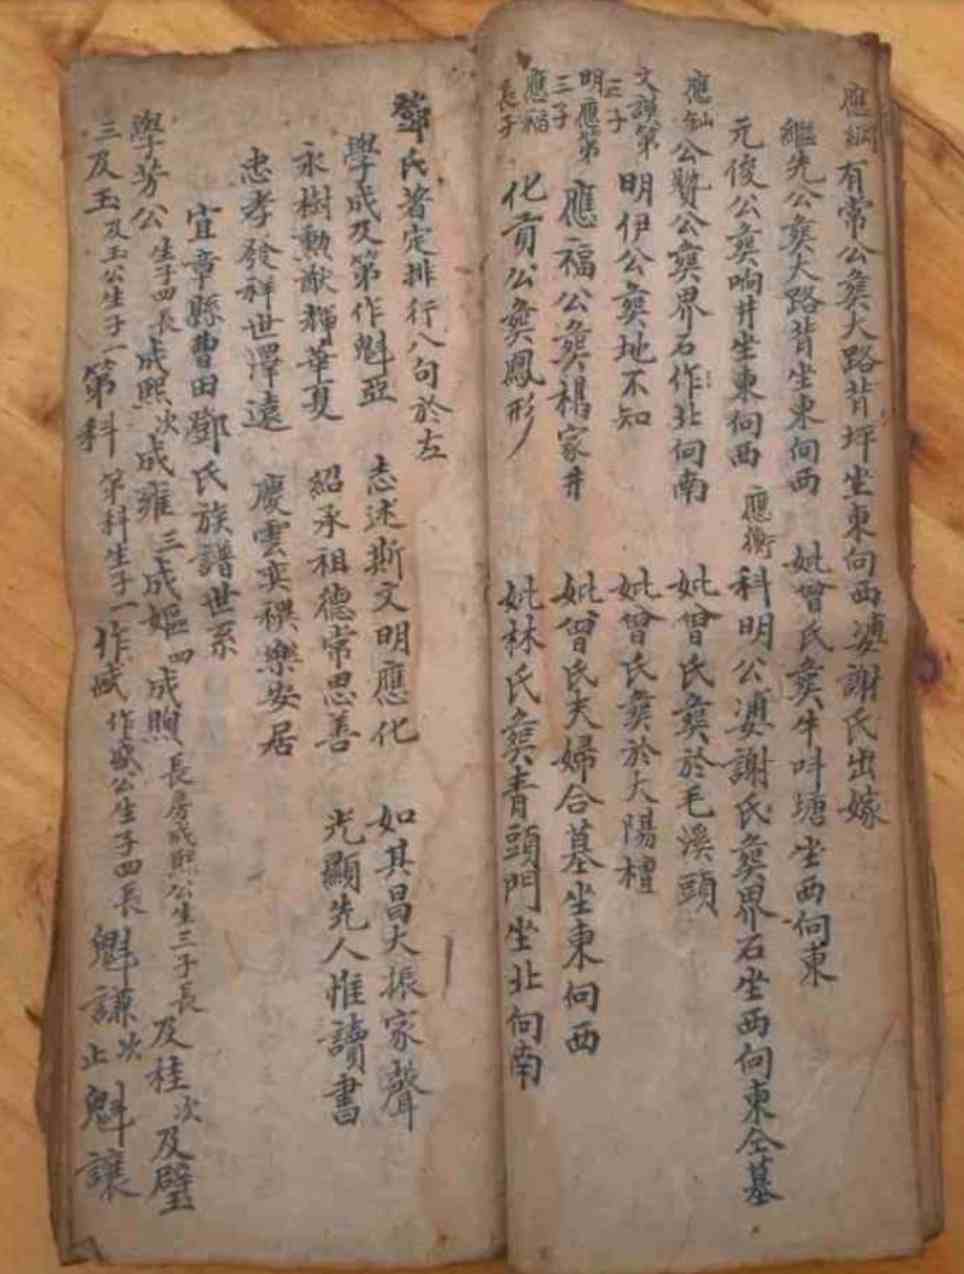 應綱 有常公塟大路背坪坐東向西婆謝氏出嫁
繼先公塟大路背坐東向西 妣曾氏塟牛叫塘坐西向東
元俊公塟响井坐東向西 應衡 科明公婆謝氏塟界石坐西向東仝墓
應仙 公贤公塟界石作北向南 妣曾氏塟於毛溪頭
文謨第三子 明伊公塟地不知 妣曾氏塟於大陽樻
明應第三子 應福公塟楊家井 妣曾氏夫婦合墓坐東向西
應福長子 化育公塟鳳形 妣林氏塟青頭門坐北向南
鄧氏著定排行八句於左
學成及第作魁亞 志述斯文明應化 如其昌大振家聲
永樹勳猷輝華夏 紹承祖德常思善 光顯先人惟讀書
忠孝發祥世澤遠 慶雲奕禩樂安居
宜章縣曹田鄧氏族譜世系
學芳公 生子四長 成熙 次 成雍 三 成嫗 四 成煦 長房成熙公生三子長 及桂 次 及璧
三 及玉 及玉公生子一 第科 第科生子一 作咸 作咸公生子四長 魁謙 次 止 魁讓